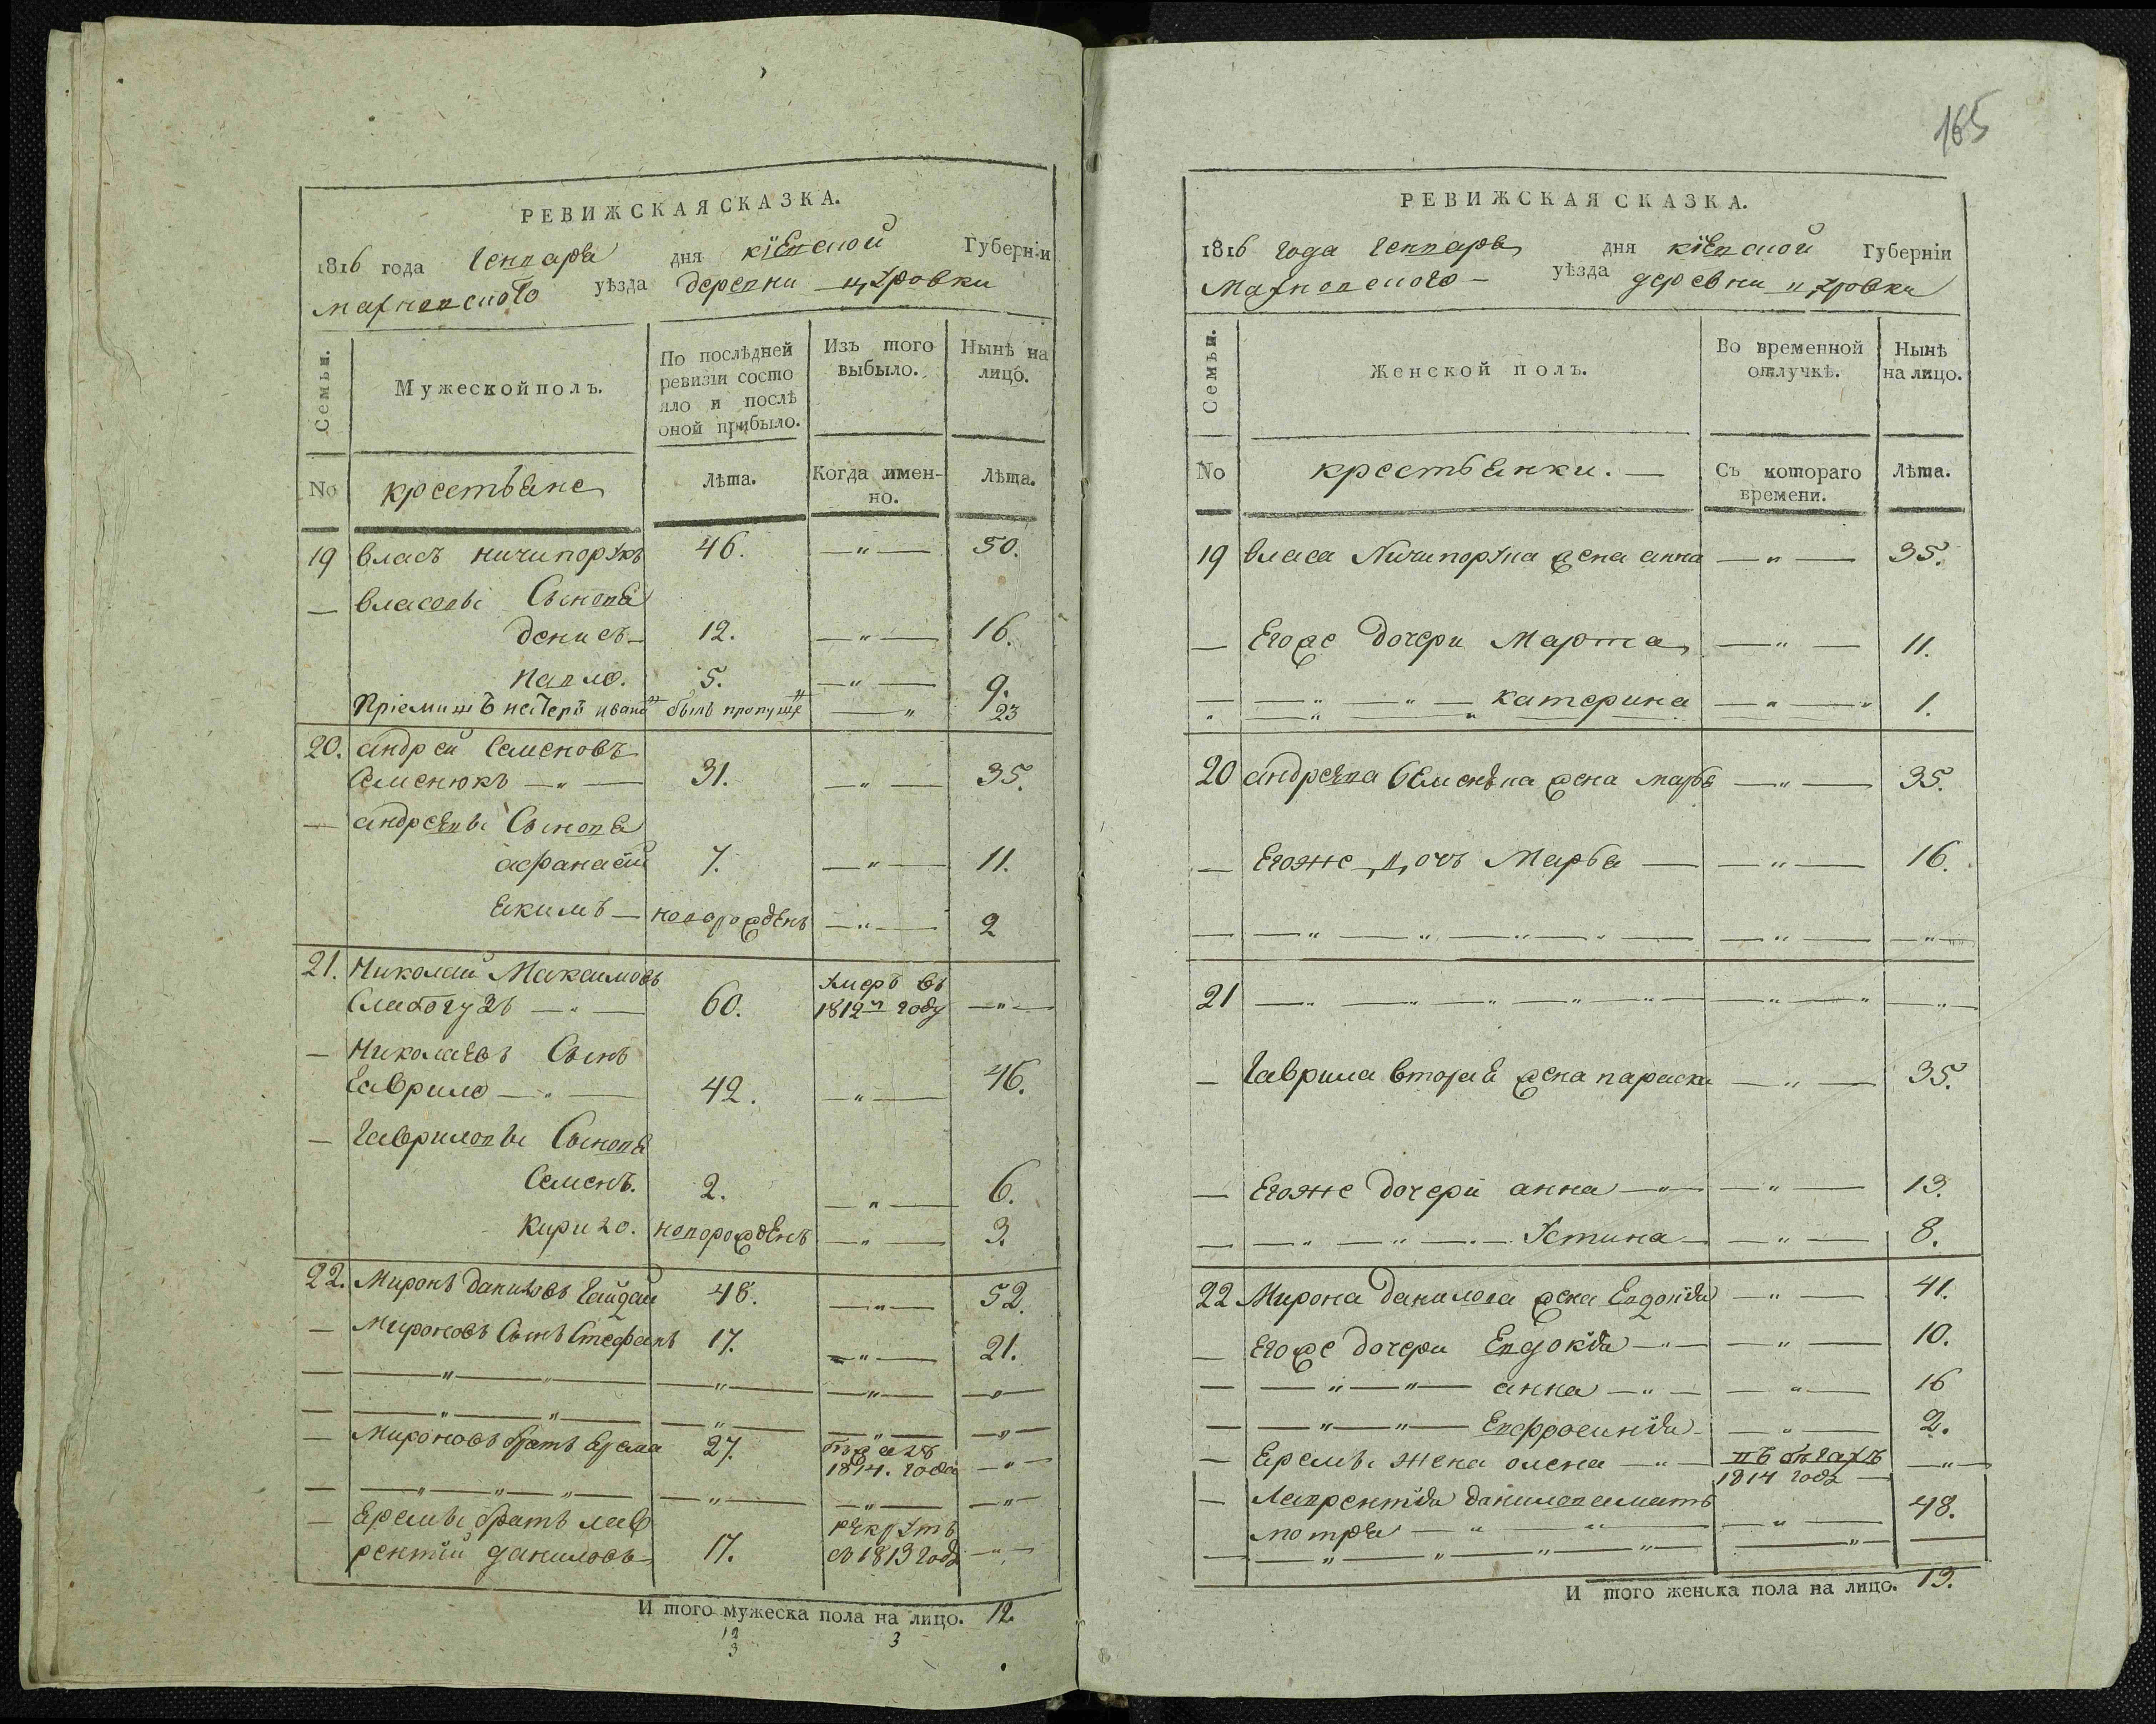 РЕВИЖСКАЯ СКАЗКА.
1816 года Генваря дня кіевской Губерніи
махновского уѣзда деревни щуровки
Семьи. Мужеской полъ. По послѣдней ревизіи состояло и послѣ оной прибыло. Изъ того выбыло. Нынѣ на лицо.
No крестьяне Лѣта. Когда именно. Лѣта.
19 власъ ничипорукъ 46. —"— 50.
— власовы Сынова
денисъ — 12. —"— 16.
павло. 5. —"— 9.
Пріемишъ нестеръ ивановъ былъ пропущѣ —" 23
20. андрей Семеновъ
Семенюкъ —"— 31. —"— 35.
— андреевы Сынова
афанасій 7. —"— 11.
Якимъ — новорожденъ —"— 2
21. Николай Максимовъ умеръ въ
Слабогузъ —"— 60. 1812м году —"—
— Николаевъ Сынъ
Гаврило —"— 42. —"— 46.
— Гавриловы Сынова
Семенъ. 2. —"— 6.
Кирило. новорожденъ —"— 3.
22. Миронъ даниловъ Гайдай 48. —"— 52.
— Мироновъ Сынъ Стефанъ 17. —"— 21.
— —"—"— —"— —"— —"—
— —"—"— —"— —"— —"—
— Мироновъ братъ Ерема 27. бѣжалъ
1814. года —"—
— —"—"—"— —"— —"— —"—
— Еремы братъ лав рекрутъ
рентій даниловъ — 17. въ 1813 годѣ —"—
И того мужеска пола на лицо. 12.
12 3
3
165
РЕВИЖСКАЯ СКАЗКА.
1816 года Генваря дня кіевской Губерніи
Махновского — уѣзда деревни щуровки
Семьи. Женской полъ. Во временной отлучкѣ. Нынѣ на лицо.
No крестьянки. — Съ котораго времени. Лѣта.
19 власа Ничипорука жена анна —"— 35.
— Егоже дочери Марта —"— 11.
— —"—"— катерина —"—" 1.
" —" " 
20 андреева Семенѣва жена марья —"— 35.
— Егоже дочь Марья — —"— 16.
— —"—"—"—"— —"— —"—
21 —"—"—"—"—"— —"—" —"—
— Гаврила вторая жена параска —"— 35.
— Егоже дочери анна —"— —"— 13.
— —"—"—"— Устина — —"— 8.
22 Мирона данилова жена Евдокія —"— 41.
— Егоже дочери Евдокія —"— —"— 10.
— —"—"— анна —"— —"— 16
— —"—"— Евфросинія — —"— 2.
— Еремы жена олена —"— въ бѣгахъ —"—
1814 годѣ —
— Лаврентія данилова мать
мотря —"—"— —"— 48.
— —"—"—"—"— —"— —
И того женска пола на лицо. 13.